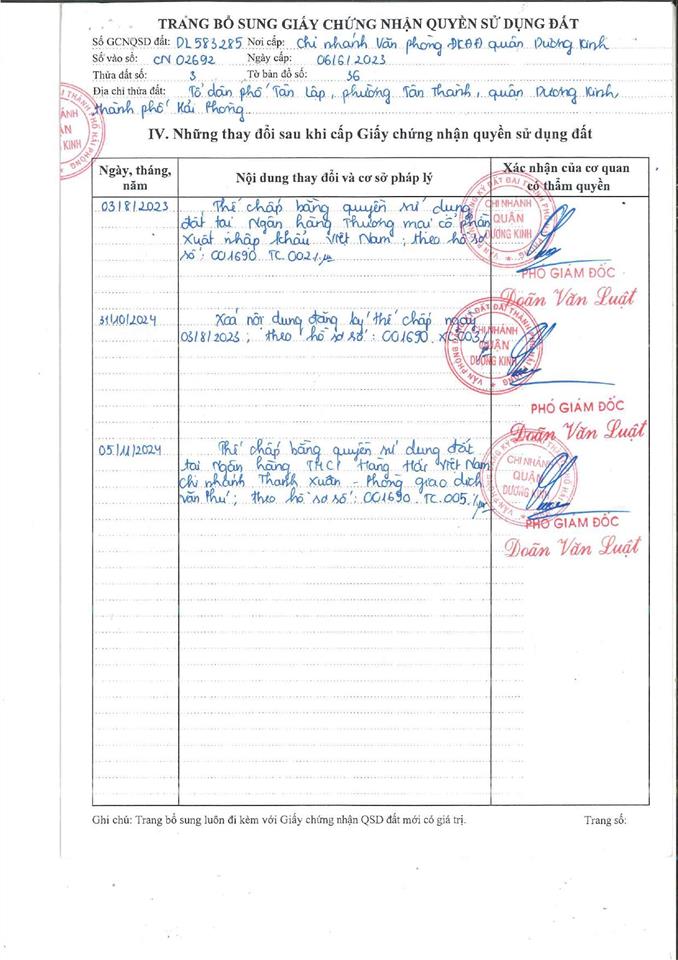 TRANG BỔ SUNG GIẤY CHỨNG NHẬN QUYỀN SỬ DỤNG ĐẤT
Số GCNQSD đất: DL583285 Nơi cấp: Chi nhánh Văn phòng ĐKĐĐ quận Dương Kinh
Số vào sổ: CN 02692 Ngày cấp: 06/6/2023
Thửa đất số: 3 Tờ bản đồ số: 36
Địa chỉ thửa đất: Tổ dân phố Tân Lập, phường Tân Thành, quận Dương Kinh,
thành phố Hải Phòng
IV. Những thay đổi sau khi cấp Giấy chứng nhận quyền sử dụng đất
Ngày, tháng, năm
Nội dung thay đổi và cơ sở pháp lý
Xác nhận của cơ quan có thẩm quyền
03/8/2023 Thế chấp bằng quyền sử dụng
đất tại Ngân hàng Thương mại cổ phần
Xuất nhập khẩu Việt Nam; theo hồ sơ
số: 001690.TC.002
CHI NHÁNH
QUẬN
DƯƠNG KINH
PHÓ GIÁM ĐỐC
Doãn Văn Luật
31/10/2024 Xoá nội dung đăng ký thế chấp ngày
03/8/2023; theo hồ sơ số: 001690.XC.003
CHI NHÁNH
QUẬN
DƯƠNG KINH
PHÓ GIÁM ĐỐC
Doãn Văn Luật
05/11/2024 Thế chấp bằng quyền sử dụng đất
tại Ngân hàng TMCP Hàng Hải Việt Nam
chi nhánh Thanh Xuân - Phòng giao dịch
Văn Phú; theo hồ sơ số: 001690.TC.005
CHI NHÁNH
QUẬN
DƯƠNG KINH
PHÓ GIÁM ĐỐC
Doãn Văn Luật
Ghi chú: Trang bổ sung luôn đi kèm với Giấy chứng nhận QSD đất mới có giá trị. Trang số: